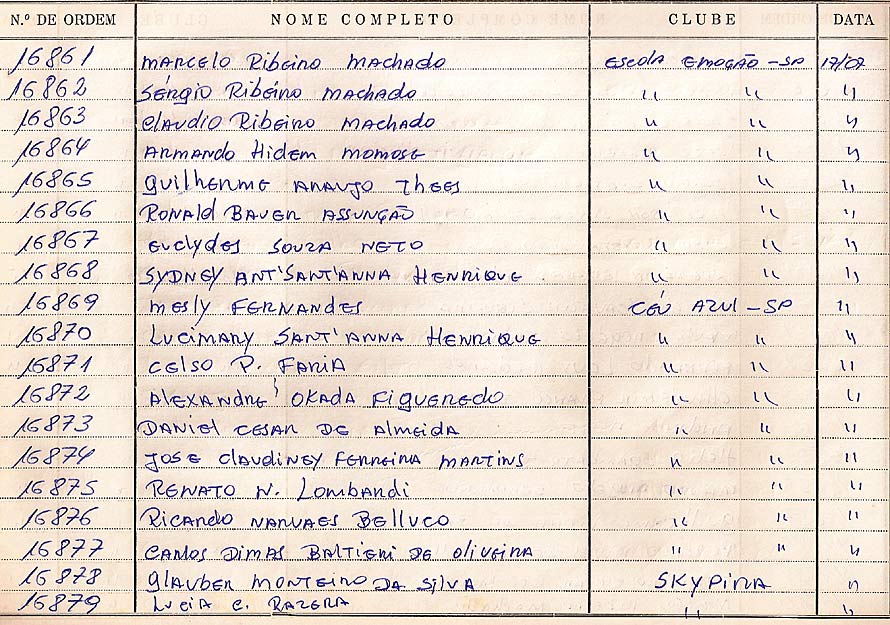 N.º DE ORDEM NOME COMPLETO CLUBE DATA
16861 MARCELO RIBEIRO MACHADO ESCOLA EMOÇÃO - SP 17/07
16862 SÉRGIO RIBEIRO MACHADO " " "
16863 CLAUDIO RIBEIRO MACHADO " " "
16864 ARMANDO HIDEM MOMOSE " " "
16865 GUILHERME ARAUJO THEES " " "
16866 RONALD BAUER ASSUNÇÃO " " "
16867 EUCLYDES SOUZA NETO " " "
16868 SYDNEY ANT'SANT'ANNA HENRIQUE " " "
16869 MESLY FERNANDES CÉU AZUL - SP "
16870 LUCIMARY SANT'ANNA HENRIQUE " " "
16871 CELSO P. FARIA " " "
16872 ALEXANDRE OKADA FIGUEREDO " " "
16873 DANIEL CESAR DE ALMEIDA " " "
16874 JOSE CLAUDINEY FERREIRA MARTINS " " "
16875 RENATO N. LOMBARDI " " "
16876 RICARDO NARVAES BELLUCO " " "
16877 CARLOS DIMAS BALTIERI DE OLIVEIRA " " "
16878 GLAUBER MONTEIRO DA SILVA SKYPIRA "
16879 LUCIA C. RAZERA " "